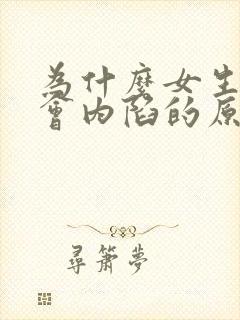 為什麼女生
會內陷的原
尋簫夢